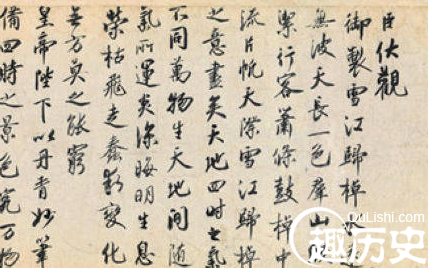 臣伏觀
御製雪江歸棹水
無波天長一色群山
潔行客蕭條鼓棹中
流片帆天際雪江歸棹
之意盡矣天地四時之氣
不同萬物生天地間隨
氣所運炎涼晦明生息
榮枯飛走蠢動變化
無方莫之能窮
皇帝陛下以丹青妙筆
備四時之景色究萬物
QuLiShi.com
趣历史